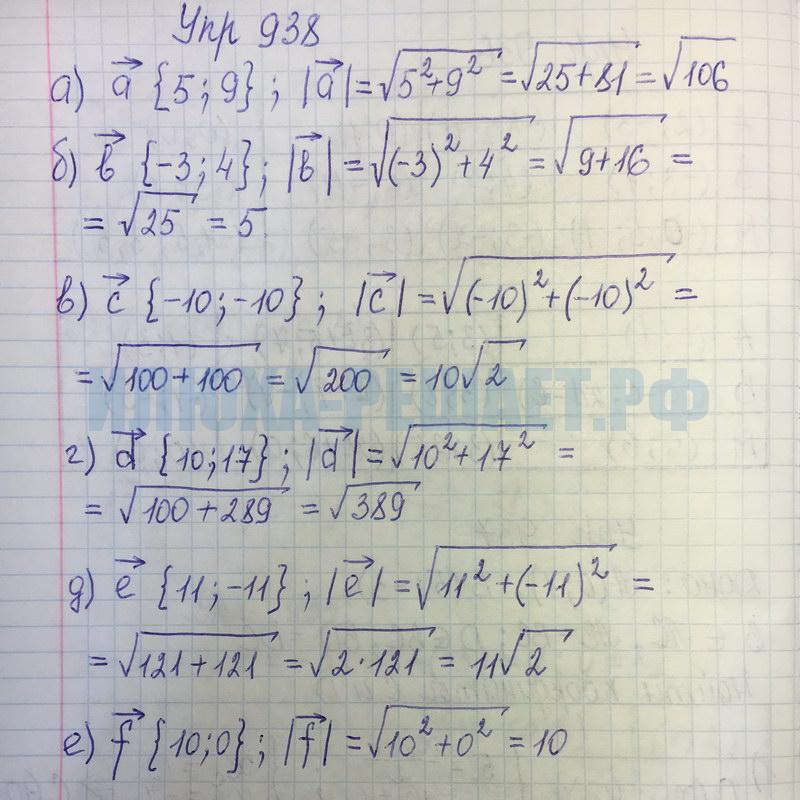 Упр 938
а) a⃗ {5; 9}; |a⃗| = √(5²+9²) = √(25+81) = √106
б) b⃗ {-3; 4}; |b⃗| = √((-3)²+4²) = √(9+16) =
= √25 = 5
в) c⃗ {-10; -10}; |c⃗| = √((-10)²+(-10)²) =
= √(100+100) = √200 = 10√2
ИЛЮХА-РЕШАЕТ.РФ
г) d⃗ {10; 17}; |d⃗| = √(10²+17²) =
= √(100+289) = √389
д) e⃗ {11; -11}; |e⃗| = √(11²+(-11)²) =
= √(121+121) = √(2·121) = 11√2
е) f⃗ {10; 0}; |f⃗| = √(10²+0²) = 10